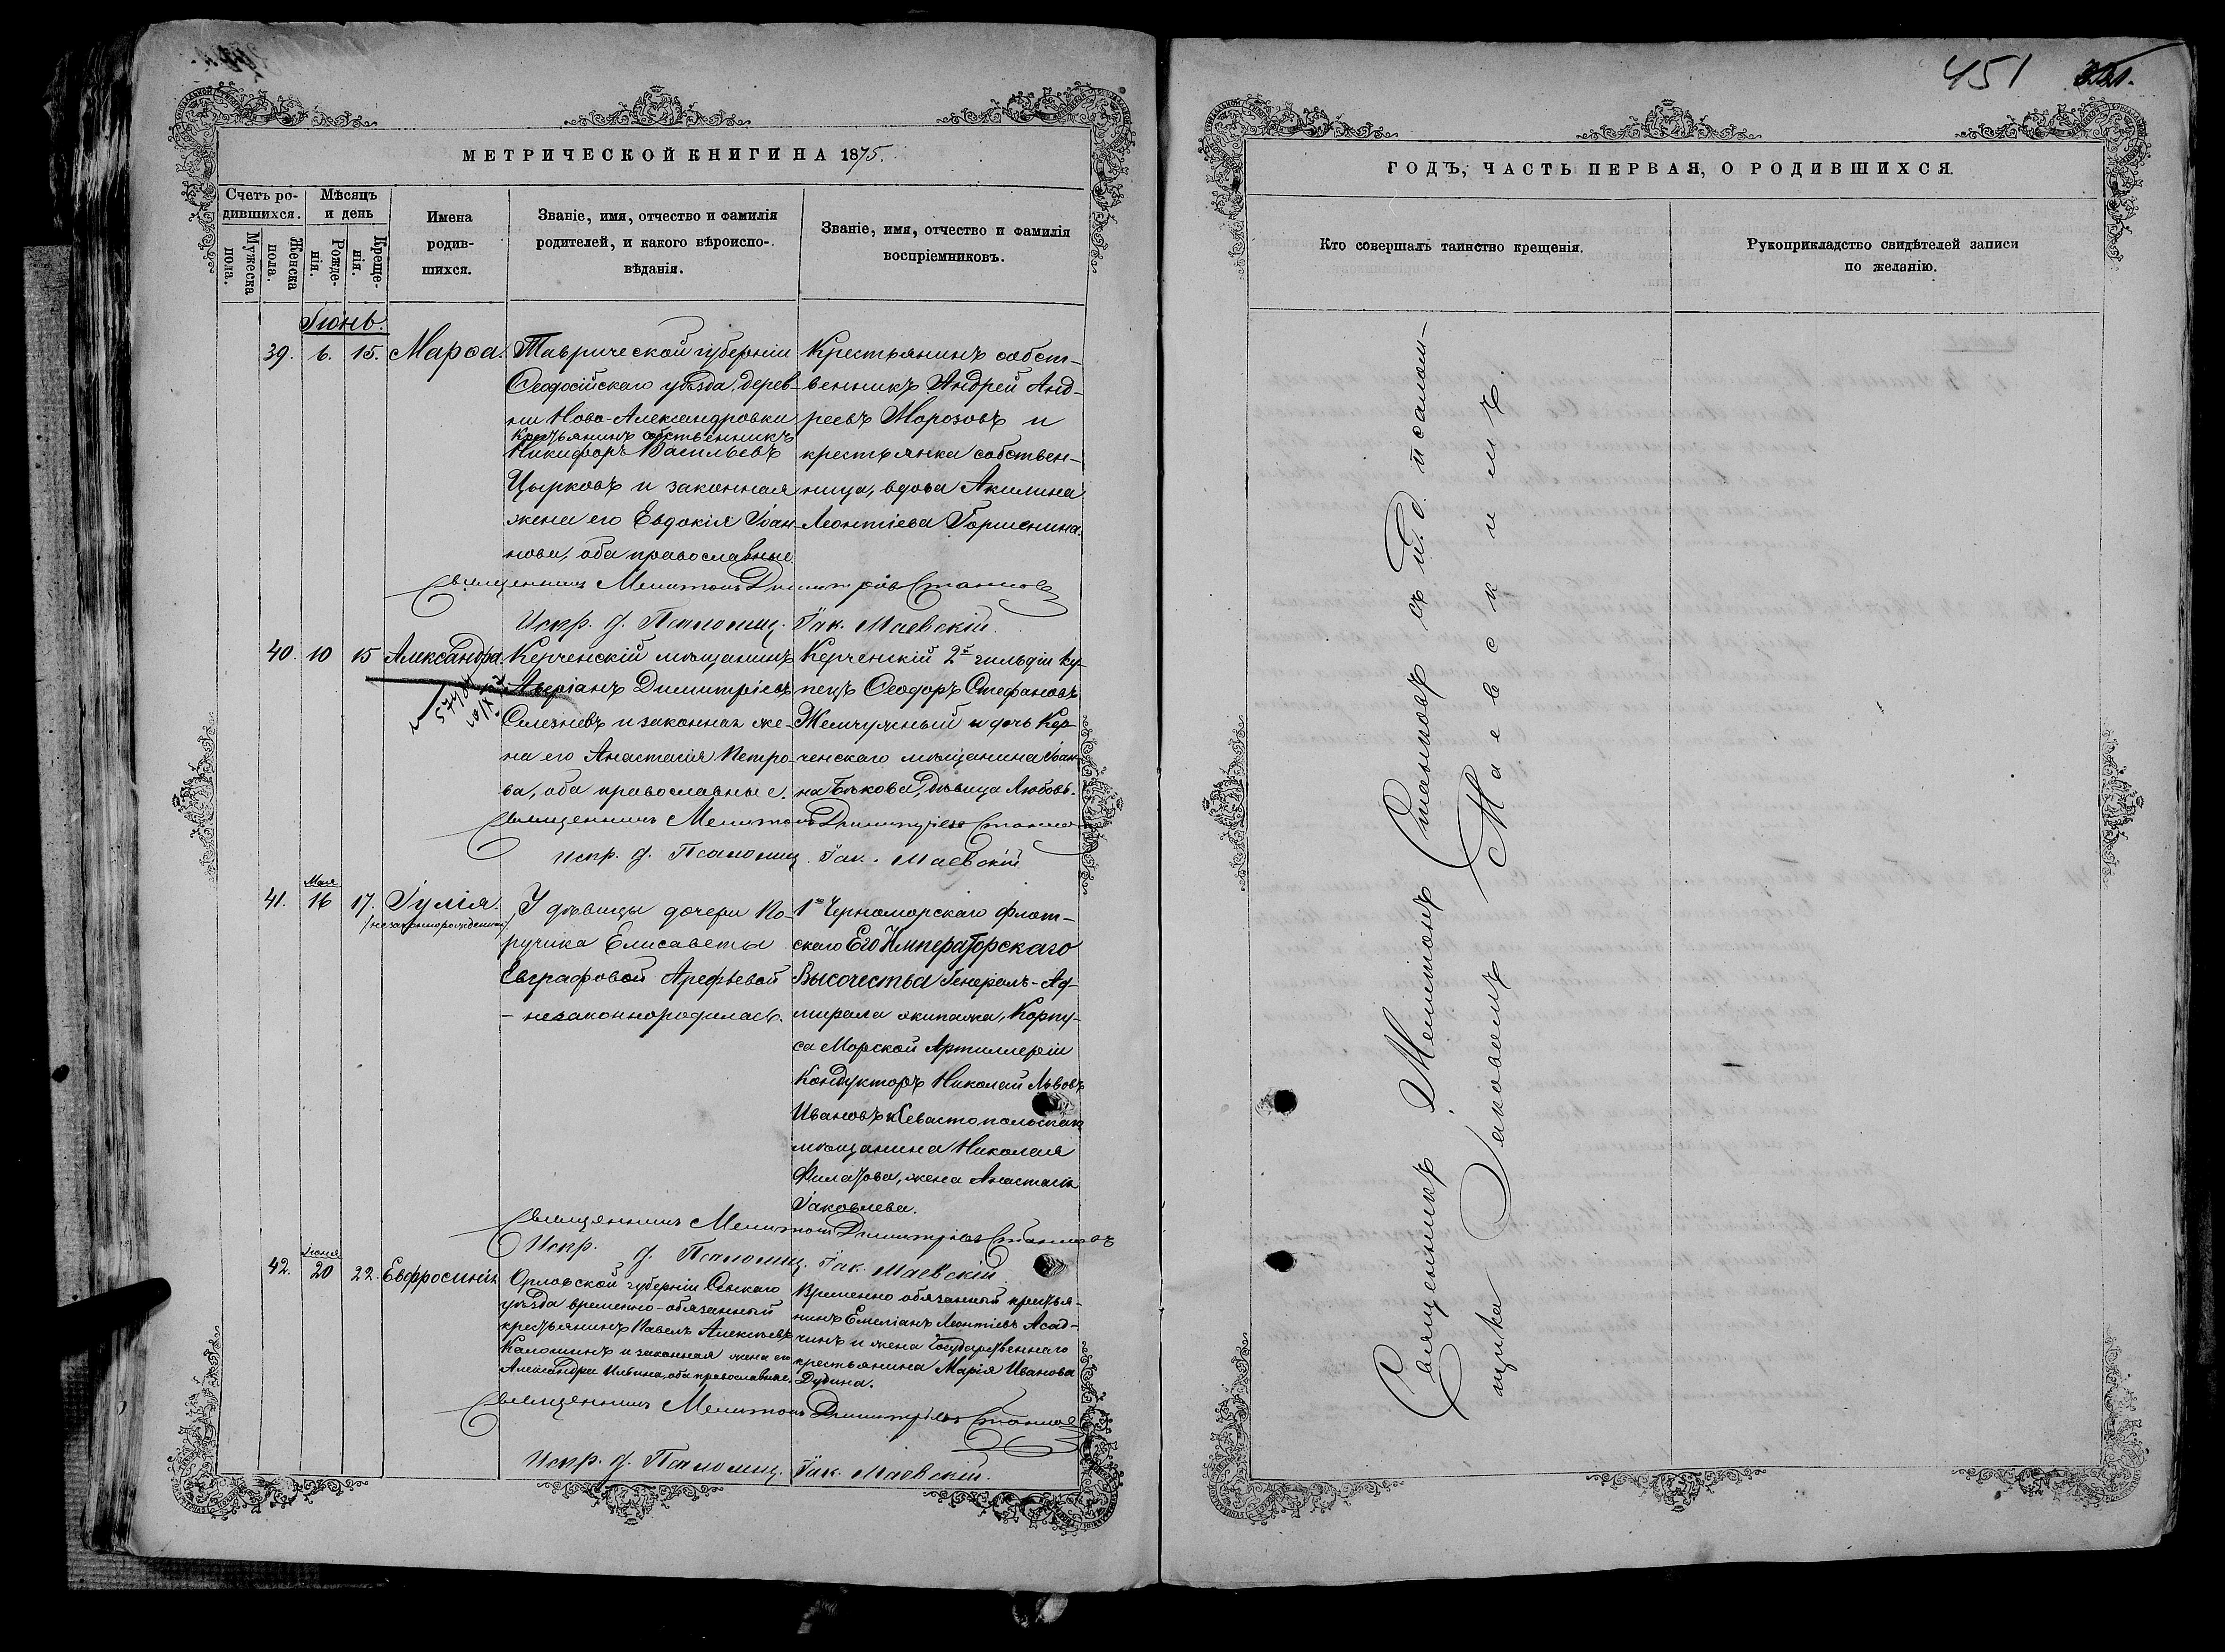 МЕТРИЧЕСКОЙ КНИГИ НА 1875.
Счетъ ро-
дившихся.
Мѣсяцъ
и день
Мужеска
пола.
Женска
пола.
Рожде-
нія.
Креще-
нія.
Имена
родив-
шихся.
Званіе, имя, отчество и фамилія
родителей, и какого вѣроиспо-
вѣданія.
Званіе, имя, отчество и фамилія
воспріемниковъ.
Іюнь.
39. 6. 15. Марѳа.
Таврической губерніи
Ѳеодосійскаго уѣзда, дерев-
ни Ново-Александровки
крестьянинъ собственникъ
Никифоръ Васильевъ
Цырковъ и законная
жена его Евдокія Іоан-
нова, оба православные
Крестьянинъ собст-
венникъ Андрей Анд-
реевъ Морозовъ и
крестьянка собствен-
ница, вдова Акилина
Леонтіева Горшенина.
Священникъ Мелитонъ Димитріевъ Станковъ
Испр. д. Псаломщ. Іак. Маевскій.
40. 10 15 Александра.
57404
Керченскій мѣщанинъ
Аверіанъ Димитріевъ
Селезневъ и законная же-
на его Анастасія Петро-
ва, оба православные.
Керченскій 2й гильдіи ку-
пецъ Ѳеодоръ Стефановъ
Жемчужный и дочь Кер-
ченскаго мѣщанина Іоан-
на Быкова, дѣвица Любовь.
Священникъ Мелитонъ Димитріевъ Станковъ
Испр. д. Псаломщ. Іак. Маевскій
Мая
41. 16 17. Іулія.
/незаконнорожденная/
У дѣвицы дочери По-
ручика Елисаветы
Евграфовой Арефьевой
- незаконнородилась.
1го Черноморскаго флот-
скаго Его Императорскаго
Высочества Генералъ-Ад-
мирала экипажа, Корпу-
са Морской Артиллеріи
Кондукторъ Николай Львовъ
Ивановъ и Севастопольскаго
мѣщанина Николая
Филатова, жена Анастасія
Іаковлева.
Священникъ Мелитонъ Димитріевъ Станковъ
Испр. д. Псаломщ. Іак. Маевскій
Іюня
42. 20 22. Евфросинія
Орловской губерніи Сѣвскаго
уѣзда временно-обязанный
крестьянинъ Павелъ Алексѣевъ
Калошинъ и законная жена его
Александра Ильина, оба православные.
Временно обязанный крестья-
нинъ Емеліанъ Леонтіевъ Асад-
чинъ и жена Государственнаго
крестьянина Марія Иванова
Дудина.
Священникъ Мелитонъ Димитріевъ Станковъ
Испр. д. Псаломщ. Іак. Маевскій.
451
ГОДЪ, ЧАСТЬ ПЕРВАЯ, О РОДИВШИХСЯ.
Кто совершалъ таинство крещенія.
Рукоприкладство свидѣтелей записи
по желанію.
Священникъ Мелитонъ Станковъ съ И. д. псалом-
щика Іаковомъ Маевскимъ.